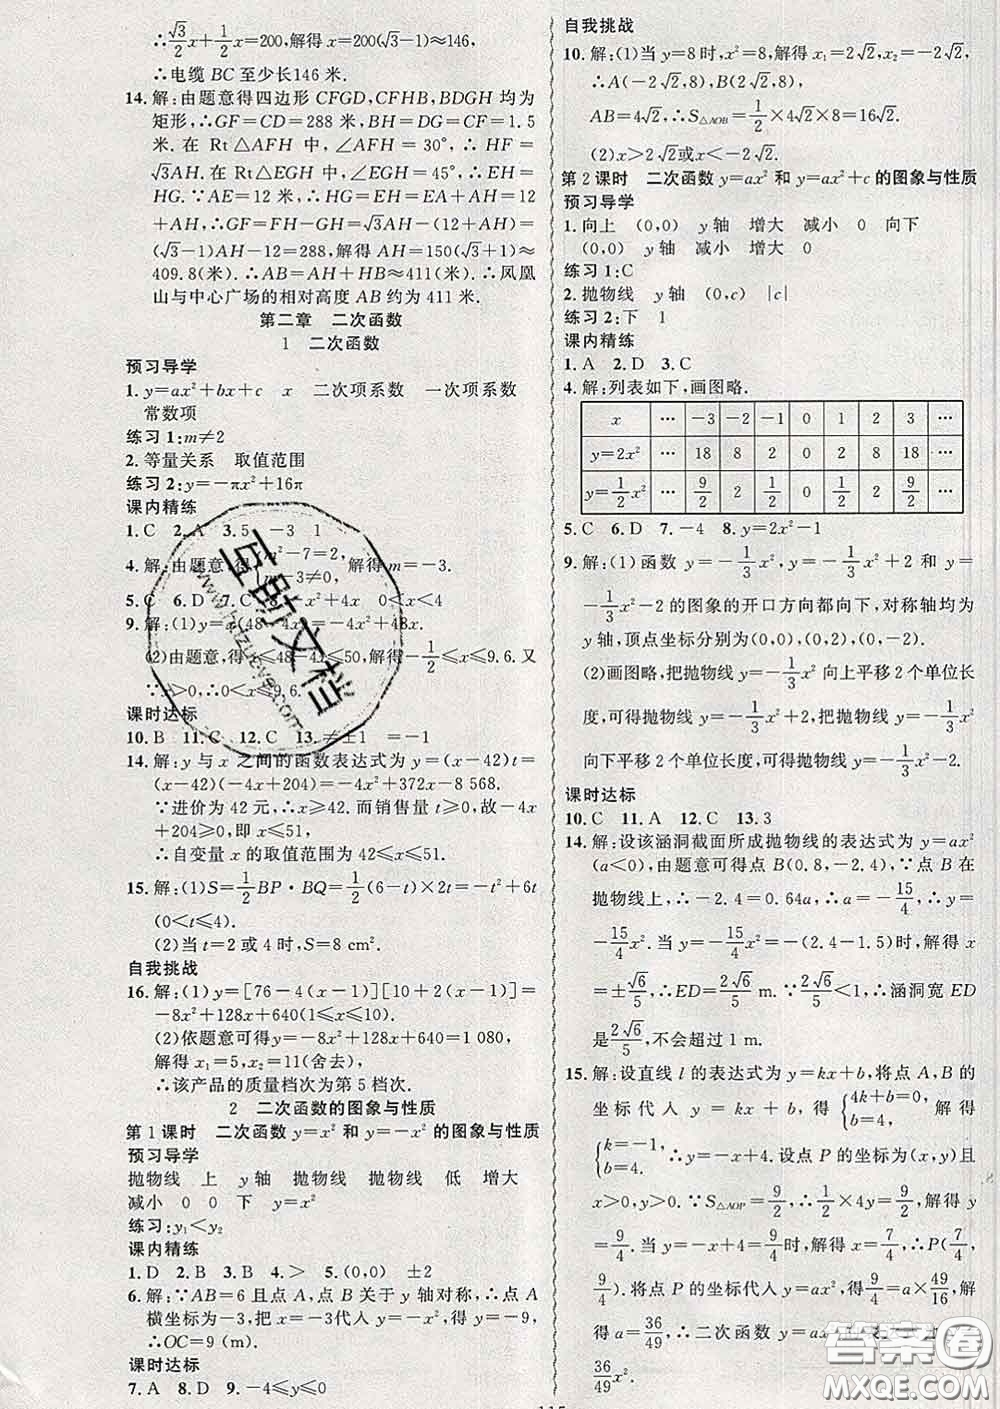 ∴√3/2x+1/2x=200,解得x=200(√3-1)≈146,
∴电缆BC至少长146米.
14.解:由题意得四边形CFGD,CFHB,BDGH均为
矩形,∴GF=CD=288米,BH=DG=CF=1.5
米.在Rt△AFH中,∠AFH=30°,∴HF=
√3AH.在Rt△EGH中,∠EGH=45°,∴EH=
HG.∵AE=12米,∴HG=EH=AH+AE=12
+AH,∴GF=FH-GH=√3AH-(12+AH)=
(√3-1)AH-12=288,解得AH=150(√3+1)≈
409.8(米).∴AB=AH+HB≈411(米).∴凤凰
山与中心广场的相对高度AB约为411米.
第二章 二次函数
1 二次函数
预习导学
1.y=ax²+bx+c x 二次项系数 一次项系数
常数项
练习1:m≠2
2.等量关系 取值范围
练习2:y=-πx²+16π
课内精练
1.C 2.A 3.5 -3 1
4.解:由题意,得{m²-7=2, m-3≠0, 解得m=-3.
5.C 6.D 7.C 8. x²+4x 0<x<4
9.解:(1)y=x(48-4x)=-4x²+48x.
(2)由题意,得 ≤48-4x≤50,解得-1/2≤x≤9.6.又
∵x>0,∴0<x≤9.6.
课时达标
10.B 11.C 12.C 13.≠±1 =-1
14.解:y与x之间的函数表达式为y=(x-42)t=
(x-42)(-4x+204)=-4x²+372x-8 568.
∵进价为42元,∴x≥42.而销售量t≥0,故-4x
+204≥0,即x≤51.
∴自变量x的取值范围为42≤x≤51.
15.解:(1)S=1/2BP·BQ=1/2(6-t)×2t=-t²+6t
(0<t≤4).
(2)当t=2或4时,S=8 cm².
自我挑战
16.解:(1)y=[76-4(x-1)][10+2(x-1)]=
-8x²+128x+640(1≤x≤10).
(2)依题意可得y=-8x²+128x+640=1 080,
解得x₁=5,x₂=11(舍去),
∴该产品的质量档次为第5档次.
2 二次函数的图象与性质
第1课时 二次函数y=x²和y=-x²的图象与性质
预习导学
抛物线 上 y轴 抛物线 抛物线 低 增大
减小 0 0 下 y=x²
练习:y₁<y₂
课内精练
1.D 2.B 3.B 4.> 5.(0,0) ±2
6.解:∵AB=6且点A,点B关于y轴对称,∴点A
横坐标为-3,把x=-3代入y=-x²,得y=-9,
∴OC=9(m).
课时达标
7.A 8.D 9.-4≤y≤0
自我挑战
10.解:(1)当y=8时,x²=8,解得x₁=2√2,x₂=-2√2,
∴A(-2√2,8),B(2√2,8),
AB=4√2,∴S△AOB=1/2×4√2×8=16√2.
(2)x>2√2或x<-2√2.
第2课时 二次函数y=ax²和y=ax²+c的图象与性质
预习导学
1.向上 (0,0) y轴 增大 减小 0 向下
(0,0) y轴 减小 增大 0
练习1:C
2.抛物线 y轴 (0,c) |c|
练习2:下 1
课内精练
1.A 2.D 3.C
4.解:列表如下,画图略.
x … -3 -2 -1 0 1 2 3 …
y=2x² … 18 8 2 0 2 8 18 …
y=1/2x² … 9/2 2 1/2 0 1/2 2 9/2 …
5.C 6.D 7.-4 8.y=2x²-1
9.解:(1)函数y=-1/3x²,y=-1/3x²+2和y=
-1/3x²-2的图象的开口方向都向下,对称轴均为
y轴,顶点坐标分别为(0,0),(0,2),(0,-2).
(2)画图略,把抛物线y=-1/3x²向上平移2个单位长
度,可得抛物线y=-1/3x²+2,把抛物线y=-1/3x²
向下平移2个单位长度,可得抛物线y=-1/3x²-2.
课时达标
10.C 11.A 12.C 13.3
14.解:设该涵洞截面所成抛物线的表达式为y=ax²
(a<0),由题意可得点B(0.8,-2.4),∵点B在
抛物线上,∴-2.4=0.64a,∴a=-15/4,∴y=
-15/4x².当y=-15/4x²=-(2.4-1.5)时,解得x
=±√6/5,∴ED=2√6/5 m.∵2√6/5<1,∴涵洞宽ED
是2√6/5,不会超过1 m.
15.解:设直线l的表达式为y=kx+b,将点A,B的
坐标代入y=kx+b,得{4k+b=0, b=4, 解得
{k=-1, b=4. ∴y=-x+4.设点P的坐标为(x,y)且
x>0,y>0.∵S△AOP=9/2,∴1/2×4y=9/2,解得y=
9/4.当y=-x+4=9/4时,解得x=7/4,∴P(7/4,
9/4).将点P的坐标代入y=ax²,得9/4=a×49/16,解
得a=36/49,∴二次函数y=ax²
36/49x².
115
百助文档
www.baizuwen.com
答案圈
MXQE.COM